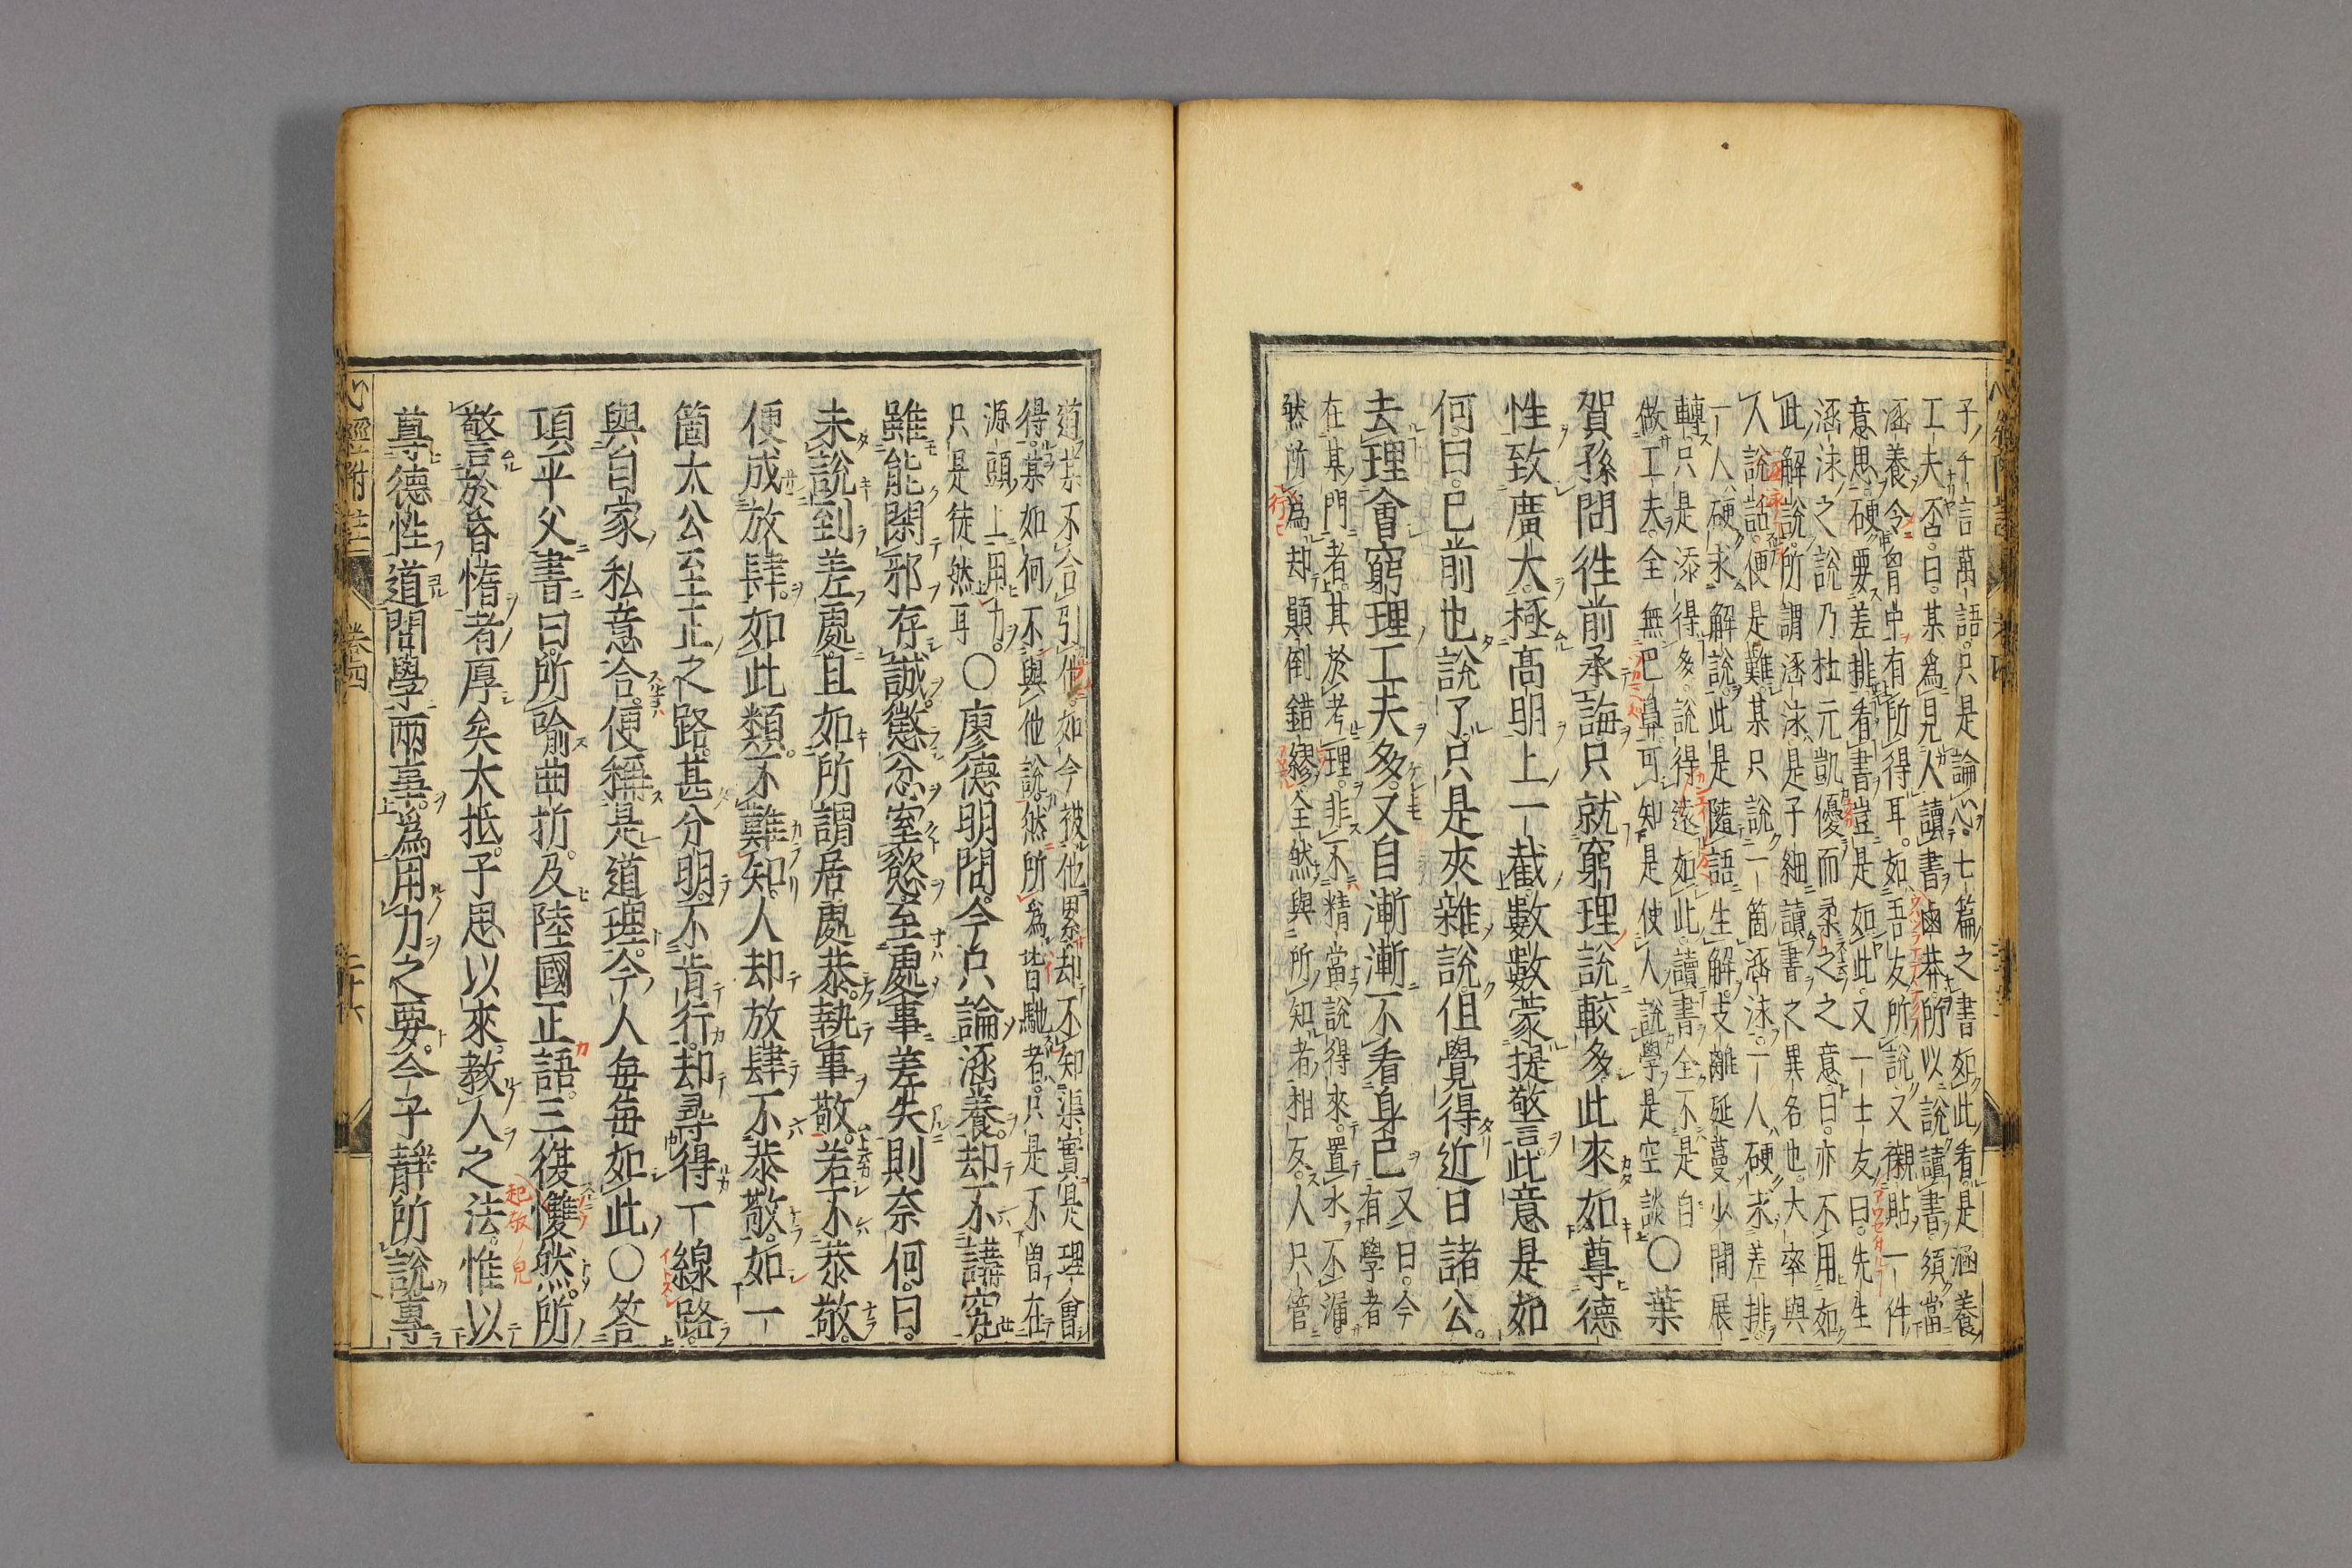 子千言萬語只是論心七篇之書如此看是涵養
工夫否曰某爲見人讀書鹵莽所以說讀書須當
涵養令胷中有所得耳如吾友所說又襯貼一件
意思硬要差排看書豈是如此又一士友曰先生
涵泳之說乃杜元凱優而柔之之意曰亦不用如
此解說所謂涵泳是子細讀書之異名也大率與
人說話便是難某只說一箇涵泳一人硬來差排
一人硬求解說此是隨語生解支離延蔓少間展
轉只是添得多說得遠如此讀書全不是自
做工夫全無巴鼻可知是使人說學是空談〇葉
賀孫問徃前承誨只就窮理說較多此來如尊德
性致廣大極高明上一截數數蒙提警此意是如
何曰已前也說了只是夾雜說但覺得近日諸公
去理會窮理工夫多又自漸漸不看身己又曰今有學者
在某門者其於考理非不精當說得來置水不漏
然所爲却顛倒錯繆全然與所知者相反人只管
道某不合引他如今被他累却不知渠實是理會
得某如何不與他說然所爲皆馳者只是不曾在
源頭上用力只是徒然耳〇廖德明問今只論涵養却不講究
雖能閑邪存誠懲忿窒慾至處事差失則奈何曰
未說到差處且如所謂居處恭執事敬若不恭敬
便成放肆如此類不難知人却放肆不恭敬如一
箇太公至正之路甚分明不肯行却尋得一線路
與自家私意合便稱是道理今人每每如此〇答
項平父書曰所喻曲折及陸國正語三復㦜然所
警於昏惰者厚矣大抵子思以來教人之法惟以
尊德性道問學兩事爲用力之要今子靜所說專
心經附註 卷四 二十六